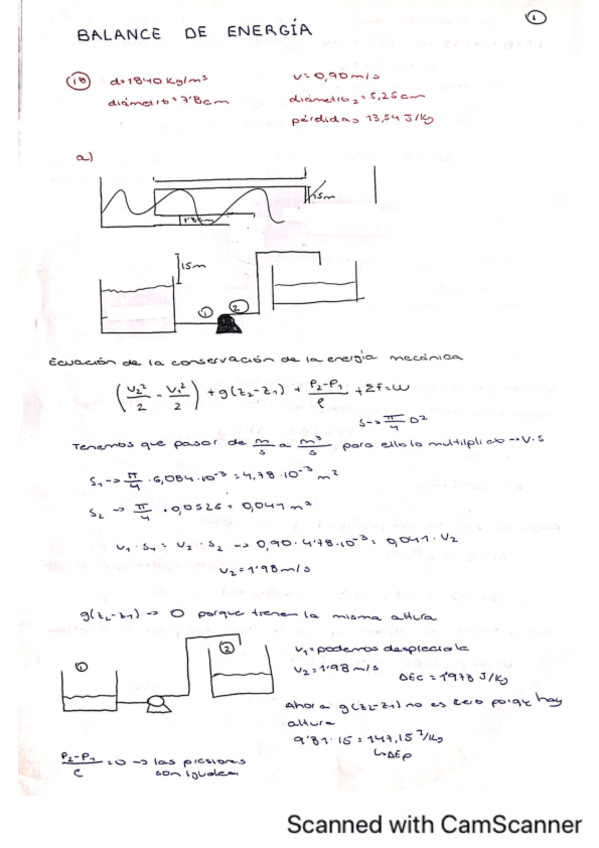 1
BALANCE DE ENERGÍA
18 d=1840 Kg/m³ v=0,90m/s
diámetro=7'8cm diámetro₂=5,26cm
pérdidas 13,54 J/Kg
a)
15m
15m
1 2
Ecuación de la conservación de la energía mecánica
(V₂²/2 - V₁²/2) + g(z₂-z₁) + P₂-P₁/ρ + Σf=W
S-> π/4 D²
Tenemos que pasar de m/s a m³/s, para ello lo multiplico -> V·S
S₁-> π/4 · 6,084·10⁻³ = 4,78·10⁻³ m²
S₂ -> π/4 · 0,0526 = 0,041 m²
V₁·S₁ = V₂·S₂ -> 0,90·4'78·10⁻³ = 0,041·V₂
V₂=1'98m/s
g(z₂-z₁) -> 0 porque tienen la misma altura
1 2
V₁=podemos despreciarla
V₂=1'98 m/s ΔEc = 1'978 J/Kg
Ahora g(z₂-z₁) no es cero porque hay
altura
9'81·15 = 147,15 J/Kg
↳ΔEp
P₂-P₁/ρ = 0 -> las presiones
son iguales
Scanned with CamScanner